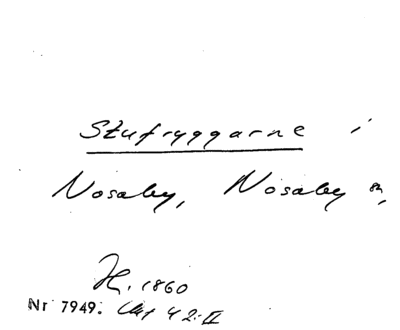 Stufryggarne i
Nosaby, Nosaby sn,
H. 1860
Nr 7949. 42:II